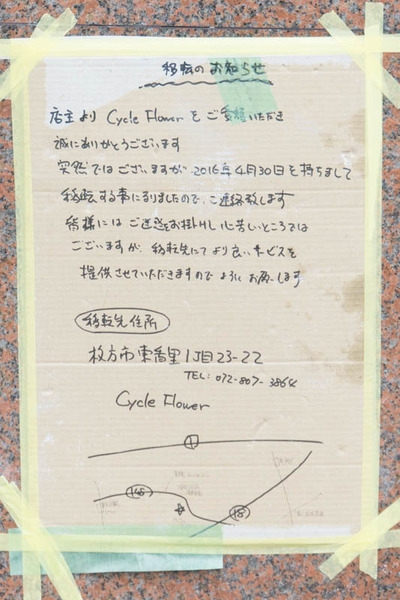 移転のお知らせ
店主より Cycle Flowerをご愛顧いただき
誠にありがとうございます
突然ではございますが 2016年4月30日を持ちまして
移転する事になりましたので、ご連絡致します
皆様にはご迷惑をお掛けし心苦しいところでは
ございますが、移転先にてより良いサービスを
提供させていただきますので よろしくお願いします
移転先住所
枚方市東香里1丁目23-22
TEL: 072-807-3864
Cycle Flower
1
18